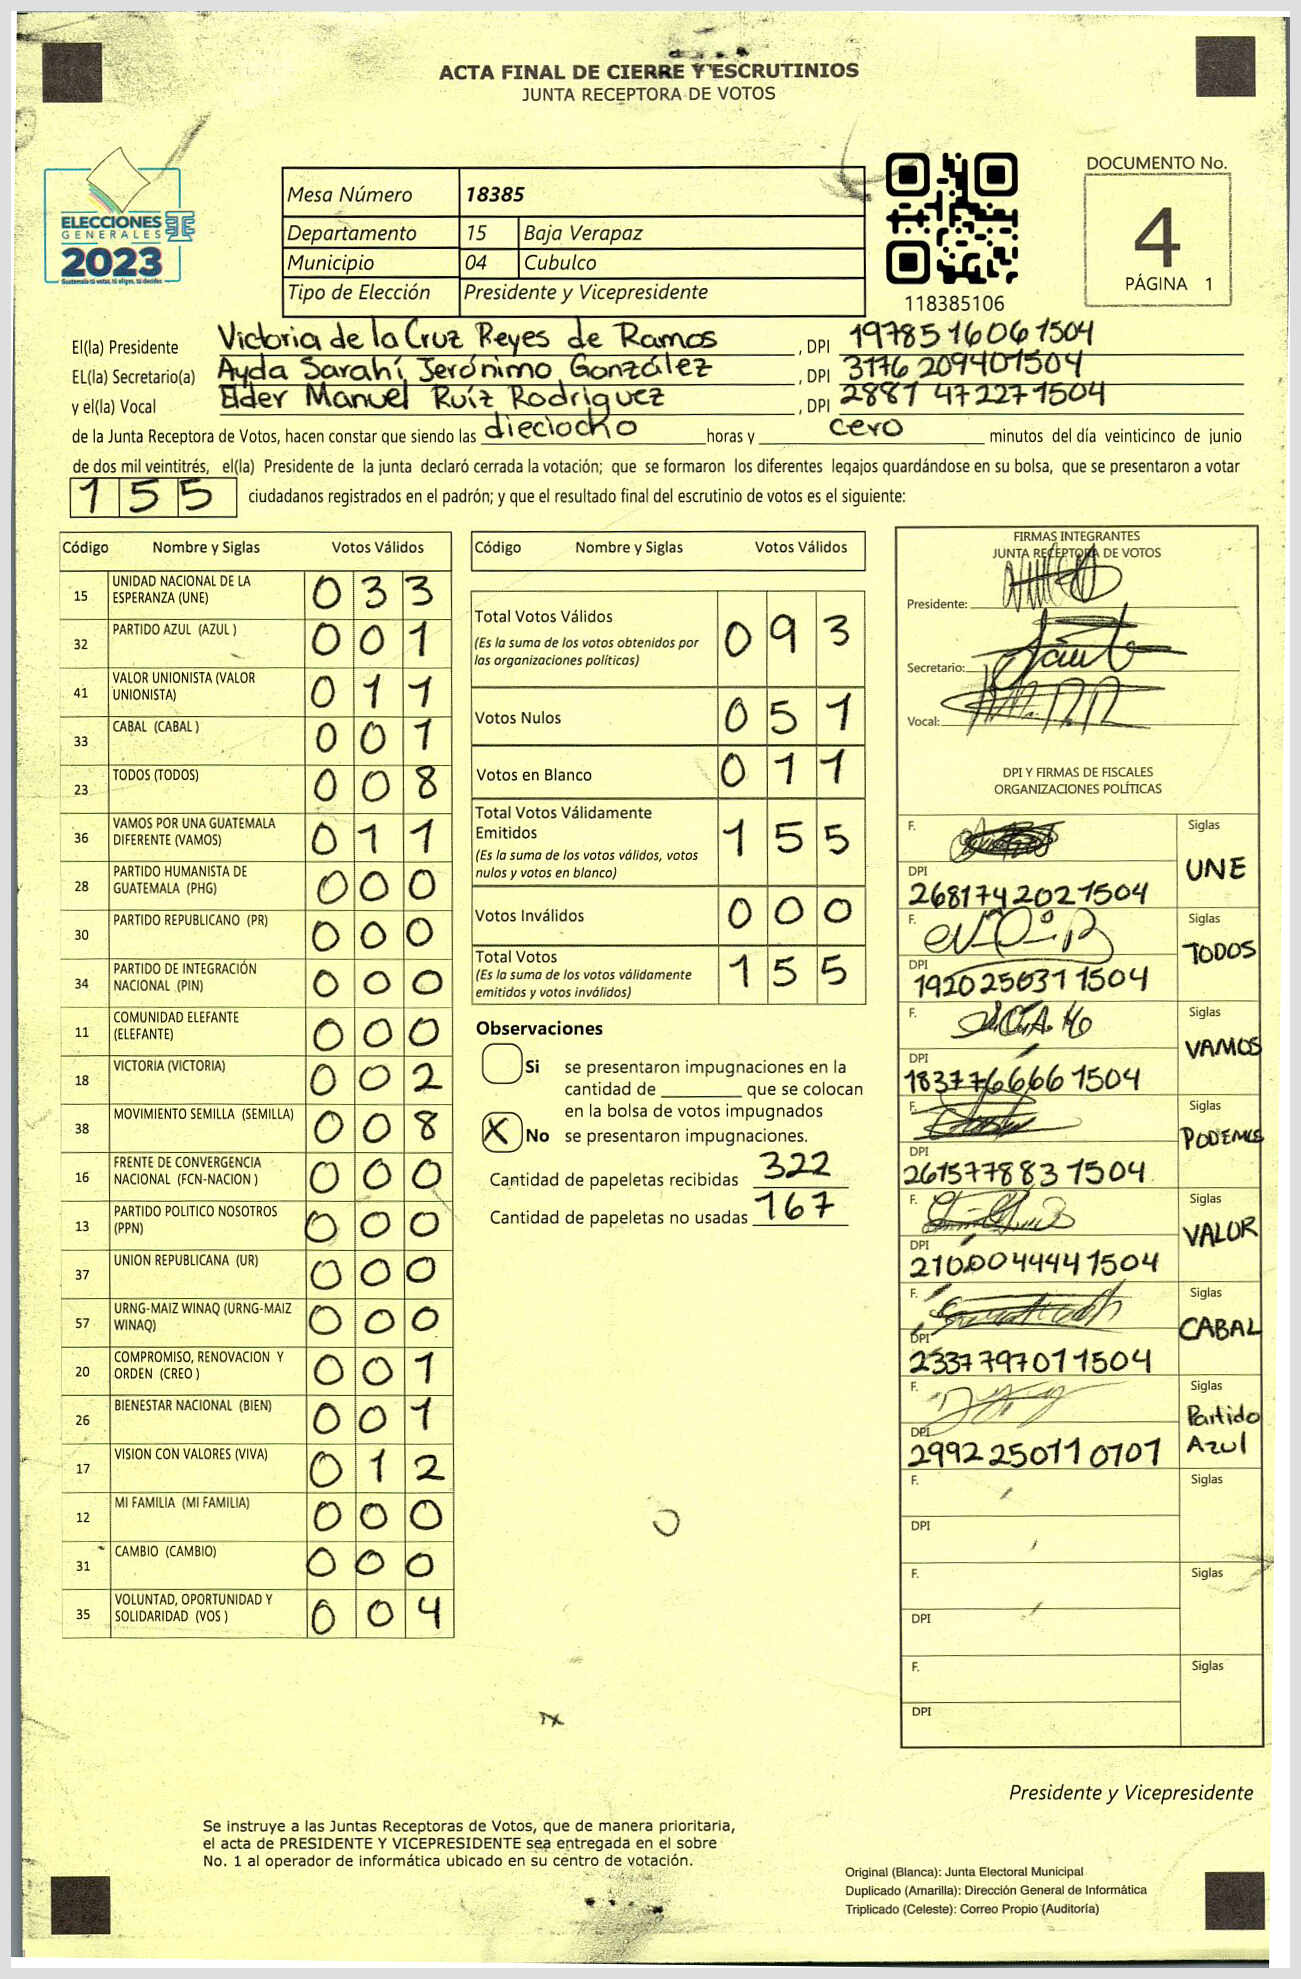 ACTA FINAL DE CIERRE Y ESCRUTINIOS
JUNTA RECEPTORA DE VOTOS
ELECCIONES
GENERALES
2023
Mesa Número 18385
Departamento 15 Baja Verapaz
Municipio 04 Cubulco
Tipo de Elección Presidente y Vicepresidente
118385106
DOCUMENTO No.
4
PÁGINA 1
El(la) Presidente Victoria de la Cruz Reyes de Ramos , DPI 1978516061504
EL(la) Secretario(a) Ayda Sarahí Jerónimo González , DPI 3176 209401504
y el(la) Vocal Elder Manuel Ruíz Rodríguez , DPI 2881 472271504
de la Junta Receptora de Votos, hacen constar que siendo las dieciocho horas y cero minutos del día veinticinco de junio
de dos mil veintitrés, el(la) Presidente de la junta declaró cerrada la votación; que se formaron los diferentes legajos guardándose en su bolsa, que se presentaron a votar
155 ciudadanos registrados en el padrón; y que el resultado final del escrutinio de votos es el siguiente:
Código Nombre y Siglas Votos Válidos
15 UNIDAD NACIONAL DE LA ESPERANZA (UNE) 033
32 PARTIDO AZUL (AZUL ) 001
41 VALOR UNIONISTA (VALOR UNIONISTA) 011
33 CABAL (CABAL ) 001
23 TODOS (TODOS) 008
36 VAMOS POR UNA GUATEMALA DIFERENTE (VAMOS) 011
28 PARTIDO HUMANISTA DE GUATEMALA (PHG) 000
30 PARTIDO REPUBLICANO (PR) 000
34 PARTIDO DE INTEGRACIÓN NACIONAL (PIN) 000
11 COMUNIDAD ELEFANTE (ELEFANTE) 000
18 VICTORIA (VICTORIA) 002
38 MOVIMIENTO SEMILLA (SEMILLA) 008
16 FRENTE DE CONVERGENCIA NACIONAL (FCN-NACION ) 000
13 PARTIDO POLITICO NOSOTROS (PPN) 000
37 UNION REPUBLICANA (UR) 000
57 URNG-MAIZ WINAQ (URNG-MAIZ WINAQ) 000
20 COMPROMISO, RENOVACION Y ORDEN (CREO ) 001
26 BIENESTAR NACIONAL (BIEN) 001
17 VISION CON VALORES (VIVA) 012
12 MI FAMILIA (MI FAMILIA) 000
31 CAMBIO (CAMBIO) 000
35 VOLUNTAD, OPORTUNIDAD Y SOLIDARIDAD (VOS ) 004
Código Nombre y Siglas Votos Válidos
Total Votos Válidos 093
(Es la suma de los votos obtenidos por
las organizaciones políticas)
Votos Nulos 051
Votos en Blanco 011
Total Votos Válidamente
Emitidos 155
(Es la suma de los votos válidos, votos
nulos y votos en blanco)
Votos Inválidos 000
Total Votos 155
(Es la suma de los votos válidamente
emitidos y votos inválidos)
Observaciones
Si se presentaron impugnaciones en la
cantidad de ________ que se colocan
en la bolsa de votos impugnados
X No se presentaron impugnaciones.
Cantidad de papeletas recibidas 322
Cantidad de papeletas no usadas 167
FIRMAS INTEGRANTES
JUNTA RECEPTORA DE VOTOS
Presidente:
Secretario:
Vocal:
DPI Y FIRMAS DE FISCALES
ORGANIZACIONES POLÍTICAS
F. Siglas
UNE
DPI
2681742021504
F. Siglas
TODOS
DPI
1920256371504
F. Siglas
VAMOS
DPI
1837766661504
F. Siglas
PODEMOS
DPI
2615778831504
F. Siglas
VALOR
DPI
2100044441504
F. Siglas
CABAL
DPI
2337797011504
F. Siglas
Partido
Azul
DPI
2992250110701
F. Siglas
DPI
F. Siglas
DPI
F. Siglas
DPI
Presidente y Vicepresidente
Se instruye a las Juntas Receptoras de Votos, que de manera prioritaria,
el acta de PRESIDENTE Y VICEPRESIDENTE sea entregada en el sobre
No. 1 al operador de informática ubicado en su centro de votación.
Original (Blanca): Junta Electoral Municipal
Duplicado (Amarilla): Dirección General de Informática
Triplicado (Celeste): Correo Propio (Auditoría)